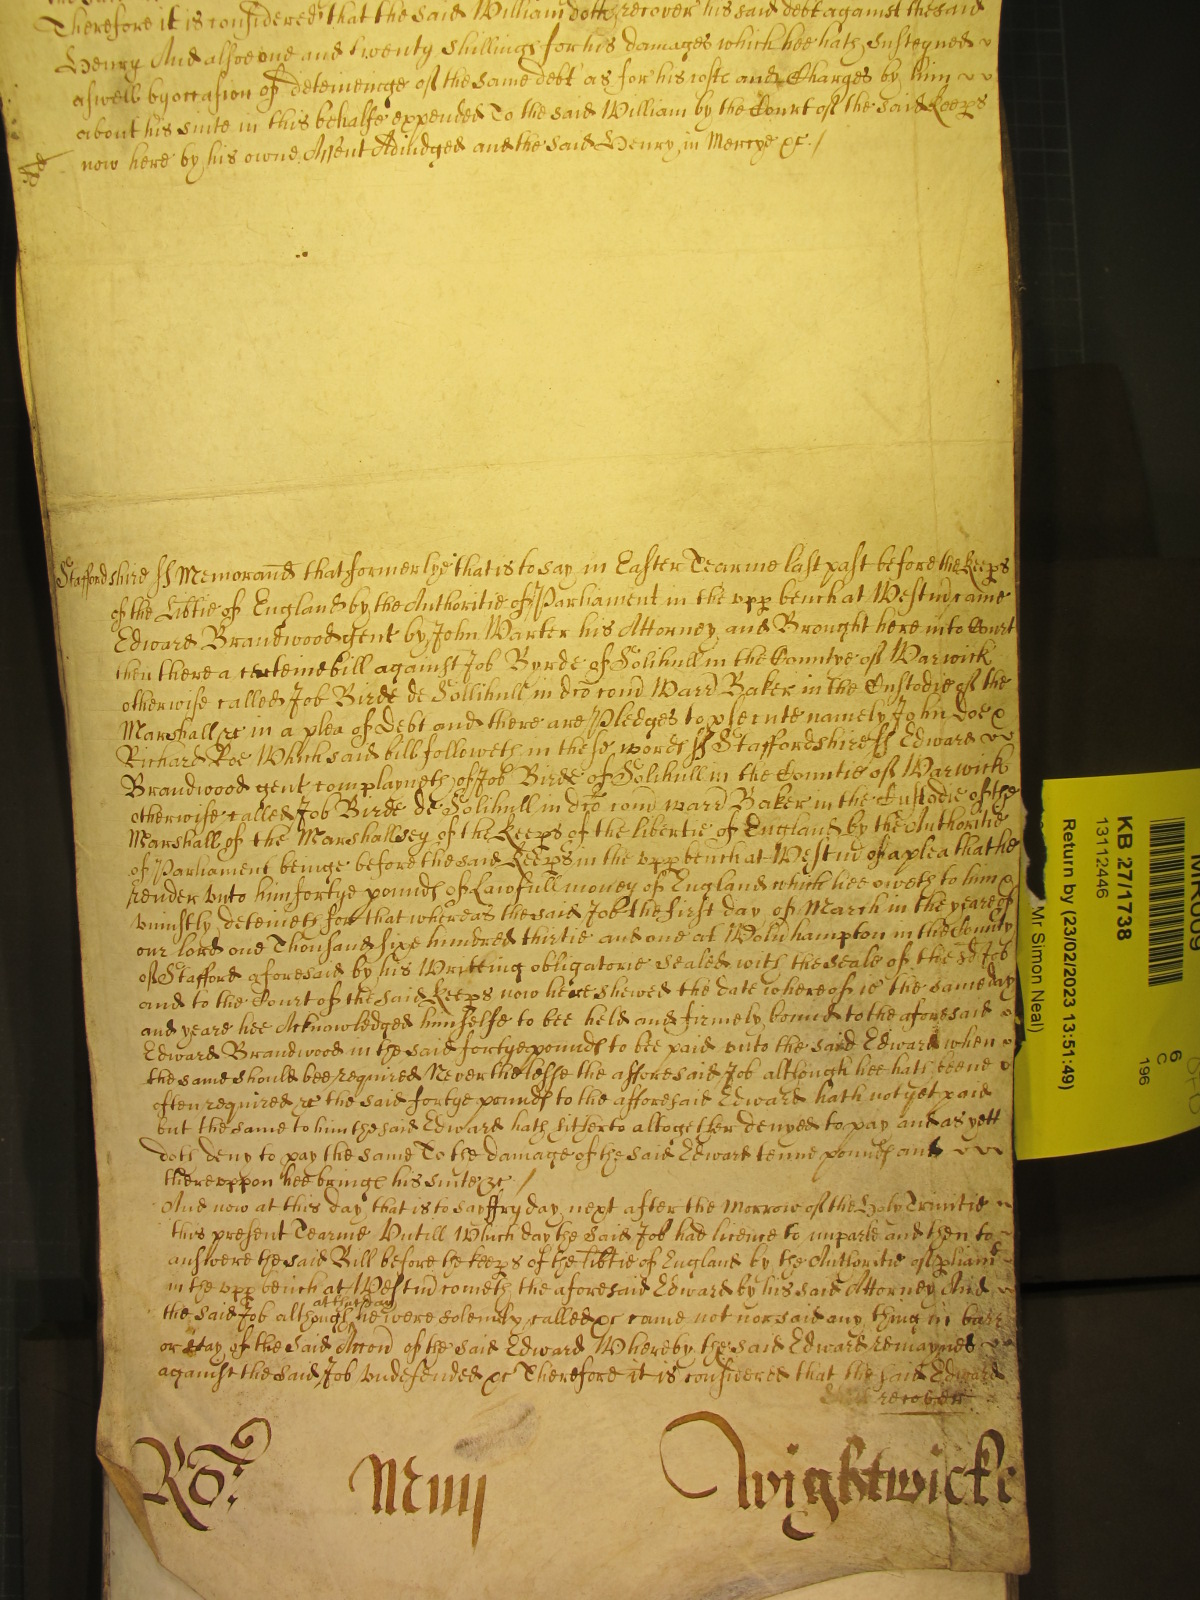 Therefore it is considered that the said William doth recover his said debt against the said
Henry And alsoe one and twenty shillings for his damages which hee hath susteyned
aswell by occasion of deteineinge of the same debt as for his costs and Charges by him
about his suite in this behalfe expended To the said William by the Court of the said Keeps
now here by his owne Assent Adiudged and the said Henry in Mercye &c /
Staffordshire ss Memorand that formerlye that is to say in Easter Tearme last past before the Keeps
of the Libtie of England by the Authoritie of Parliament in the upp bench at Westm came
Edward Brandwood gent by John Warter his Attorney and Brought here into Court
then there a certeine bill against Job Byrde of Solihull in the Countye of Warwick
otherwise called Job Birde de Sollihull in dco com Warr Baker in the Custodie of the
Marshall &c in a plea of Debt and there are Pledges to psecute namely John Doe &
Richard Roe Which said bill followeth in these words ss Staffordshire ss Edward
Brandwood gent complayneth of Job Birde of Solihull in the Countie of Warwick
otherwise called Job Birde de Solihull in dco com warr Baker in the Custodie of the
Marshall of the Marshallsey of the Keeps of the libertie of England by the Authoritie
of Parliament beinge before the said Keeps in the upp bench at Westm of a plea that he
Render unto him fortye pounds of Lawfull money of England which hee oweth to him &
uniustly deteineth for that whereas the said Job the first day of March in the yeare of
our lord one Thousand sixe hundred thirtie and one at Wolvhampton in the County
of Stafford aforesaid by his Writting obligatorie sealed with the seale of the sd Job
and to the Court of the said Keeps now heere shewed the date whereof is the same day
and yeare hee Acknowledged himselfe to bee held and firmely bound to the aforesaid
Edward Brandwood in the said fortye pounds to bee paid unto the said Edward when
the same should bee required Neverthelesse the afforesaid Job although hee hath beene
often required &c the said fortye pounds to the afforesaid Edward hath not yet paid
but the same to him the said Edward hath hitherto altogether denyed to pay and as yett
doth deny to pay the same To the damage of the said Edward tenne pounds and
thereuppon hee bringe his suite &c /
And now at this day that is to say ffryday next after the Morrow of the Holy Trinitie
this present Tearme Untill Which day the said Job had licence to imparle and then to
answere the said Bill before the keeps of the libtie of England by the Authoritie of pliamt
in the upp bench at Westm cometh the aforesaid Edward by his said Attorney And
the said Job although at that day he were solemly called &c came not nor said any thing in barr
or stay of the said Accon of the said Edward Whereby the said Edward remaynes
against the said Job undefended &c Therefore it is considered that the said Edward
recover
Ro: Miiij Wightwicke
KB 27/1738
13112446
Return by (23/02/2023 13:51:49)
Mr Simon Neal)
6
C
196